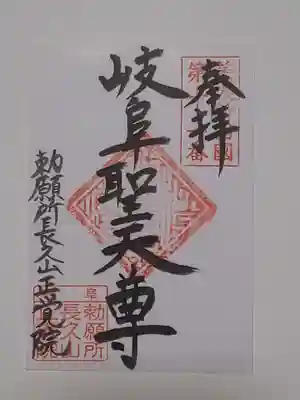 奉拝
岐阜聖天尊
勅願所長久山正覚院
岐阜
勅願所
長久山